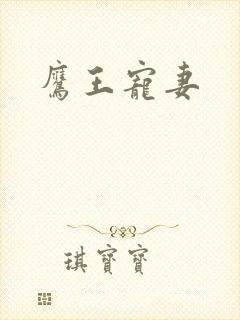 鷹王寵妻
琪寶寶